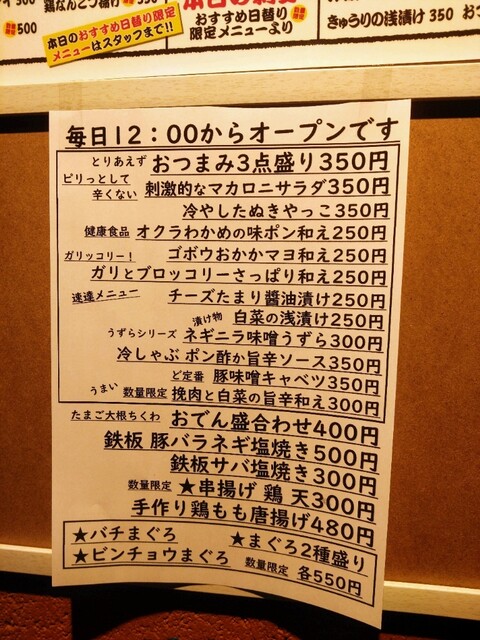 500
鶏なんこつ揚げ
本日のおすすめ日替り限定
メニューはスタッフまで!!
おすすめ日替り
限定メニューより
きゅうりの浅漬け 350
毎日12:00からオープンです
とりあえず おつまみ3点盛り350円
ピリっとして
辛くない 刺激的なマカロニサラダ350円
冷やしたぬきやっこ350円
健康食品 オクラわかめの味ポン和え250円
ガリッコリー! ゴボウおかかマヨ和え250円
ガリとブロッコリーさっぱり和え250円
速達メニュー チーズたまり醤油漬け250円
漬け物 白菜の浅漬け250円
うずらシリーズ ネギニラ味噌うずら300円
冷しゃぶ ポン酢か旨辛ソース350円
ど定番 豚味噌キャベツ350円
うまい 数量限定 挽肉と白菜の旨辛和え300円
たまご大根ちくわ おでん盛合わせ400円
鉄板 豚バラネギ塩焼き500円
鉄板サバ塩焼き300円
数量限定 ★串揚げ 鶏 天300円
手作り鶏もも唐揚げ480円
★バチまぐろ ★まぐろ2種盛り
★ビンチョウまぐろ 数量限定 各550円